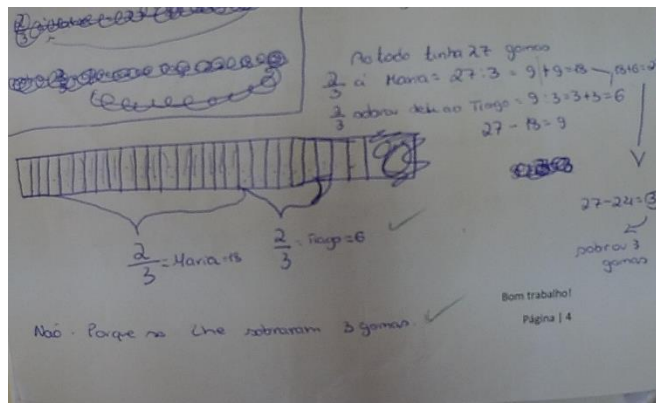 Ao todo tinha 27 gomas
2/3 á Maria = 27:3 = 9+9=18
2/3 sobrou deu ao Tiago = 9:3=3+3=6
27-18=9
27-24=3
sobrou 3
gomas
2/3 = Maria=18
2/3 = Tiago=6
Naõ. Porque so lhe sobraram 3 gomas.
Bom trabalho!
Página | 4